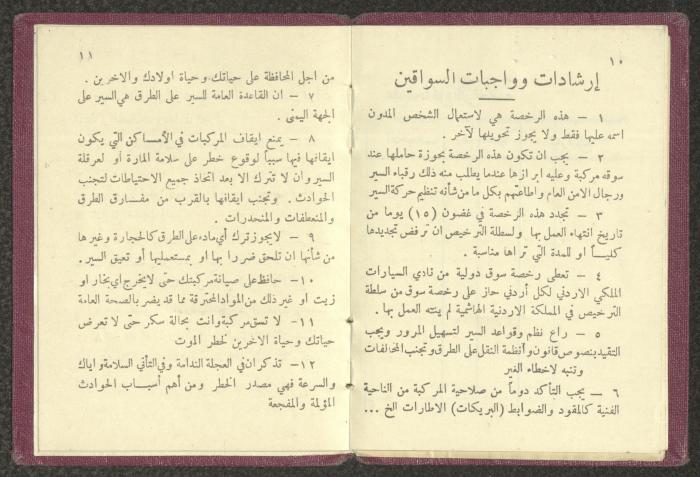 ١٠
إرشادات وواجبات السواقين
١ – هذه الرخصة هي لاستعمال الشخص المدون
اسمه عليها فقط ولا يجوز تحويلها لآخر.
٢ – يجب ان تكون هذه الرخصة بحوزة حاملها عند
سوقه مركبة وعليه ابرازها عندما يطلب منه ذلك رقباء السير
ورجال الامن العام واطاعتهم بكل ما من شأنه تنظيم حركة السير
٣ – تجدد هذه الرخصة في غضون (١٥) يوما من
تاريخ انتهاء العمل بها ولسلطة الترخيص ان ترفض تجديدها
كلياً او للمدة التي تراها مناسبة.
٤ – تعطى رخصة سوق دولية من نادي السيارات
الملكي الاردني لكل أردني حاز على رخصة سوق من سلطة
الترخيص في المملكة الاردنية الهاشمية لم ينته العمل بها.
٥ – راع نظم وقواعد السير لتسهيل المرور ويجب
التقيد بنصوص قانون وأنظمة النقل على الطرق وتجنب المخالفات
وتنبه لاخطاء الغير
٦ – يجب التأكد دوماً من صلاحية المركبة من الناحية
الفنية كالمقود والضوابط (البريكات) الاطارات الخ ...
١١
من اجل المحافظة على حياتك وحياة اولادك والاخرين.
٧ – ان القاعدة العامة للسير على الطرق هي السير على
الجهة اليمنى.
٨ – يمنع ايقاف المركبات في الأماكن التي يكون
ايقافها فيها سبباً لوقوع خطر على سلامة المارة أو لعرقلة
السير وان لا تترك الا بعد اتخاذ جميع الاحتياطات لتجنب
الحوادث. وتجنب ايقافها بالقرب من مفارق الطرق
والمنعطفات والمنحدرات.
٩ – لا يجوز ترك أي ماده على الطرق كالحجارة وغيرها
من شأنها ان تلحق ضررا بها او بمستعمليها أو تعيق السير.
١٠– حافظ على صيانة مركبتك حتى لا يخرج اي بخار او
زيت او غير ذلك من المواد المحترقة مما قد يضر بالصحة العامة
١١– لا تسق مركبة وانت بحالة سكر حتى لا تعرض
حياتك وحياة الاخرين لخطر الموت
١٢– تذكر ان في العجلة الندامة وفي التأني السلامة واياك
والسرعة فهي مصدر الخطر ومن أهم أسباب الحوادث
المؤلمة والمفجعة